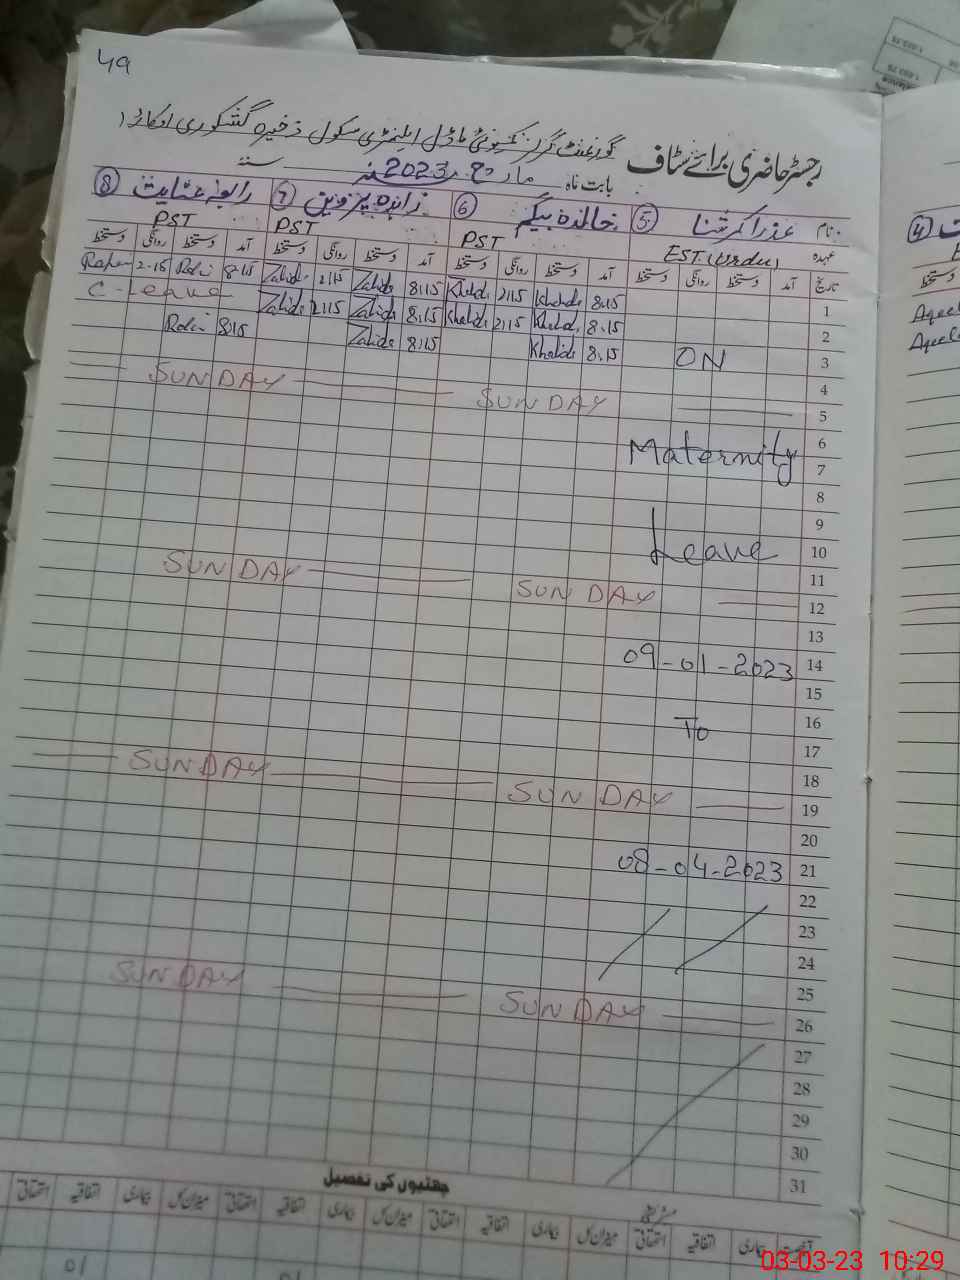 49
گورنمنٹ گرلز کمیونٹی ماڈل ایلیمنٹری سکول ذخیرہ گشکوری
رجسٹر حاضری برائے سٹاف
بابت ماہ مارچ 2023 سنہ
نام ⑤ عذرا ⑥ خالدہ بیگم ⑦ زاہدہ پروین ⑧ رابعہ عنایت
عہدہ EST (Urdu) PST PST PST
تاریخ آمد دستخط روانگی دستخط آمد دستخط روانگی دستخط آمد دستخط روانگی دستخط آمد دستخط روانگی دستخط
1 8:15 Khalida 2:15 Khalida 8:15 Zahida 2:15 Zahida 8:15 2-15
2 8:15 Khalida 2:15 Khalida 8:15 Zahida 2:15 Zahida C-Leave
3 ON 8:15 Khalida 8:15 Zahida 8:15
4
5 SUNDAY SUNDAY
6
7 Maternity
8
9
10 Leave
11
12 SUNDAY SUNDAY
13
14 09-01-2023
15
16 To
17
18
19 SUNDAY SUNDAY
20
21 08-04-2023
22
23
24
25
26 SUNDAY SUNDAY
27
28
29
30
31
چھٹیوں کی تفصیل
بیماری اتفاقیہ استحقاقی میزان کل بیماری اتفاقیہ استحقاقی میزان کل بیماری اتفاقیہ استحقاقی میزان کل بیماری اتفاقیہ استحقاقی
03-03-23 10:29